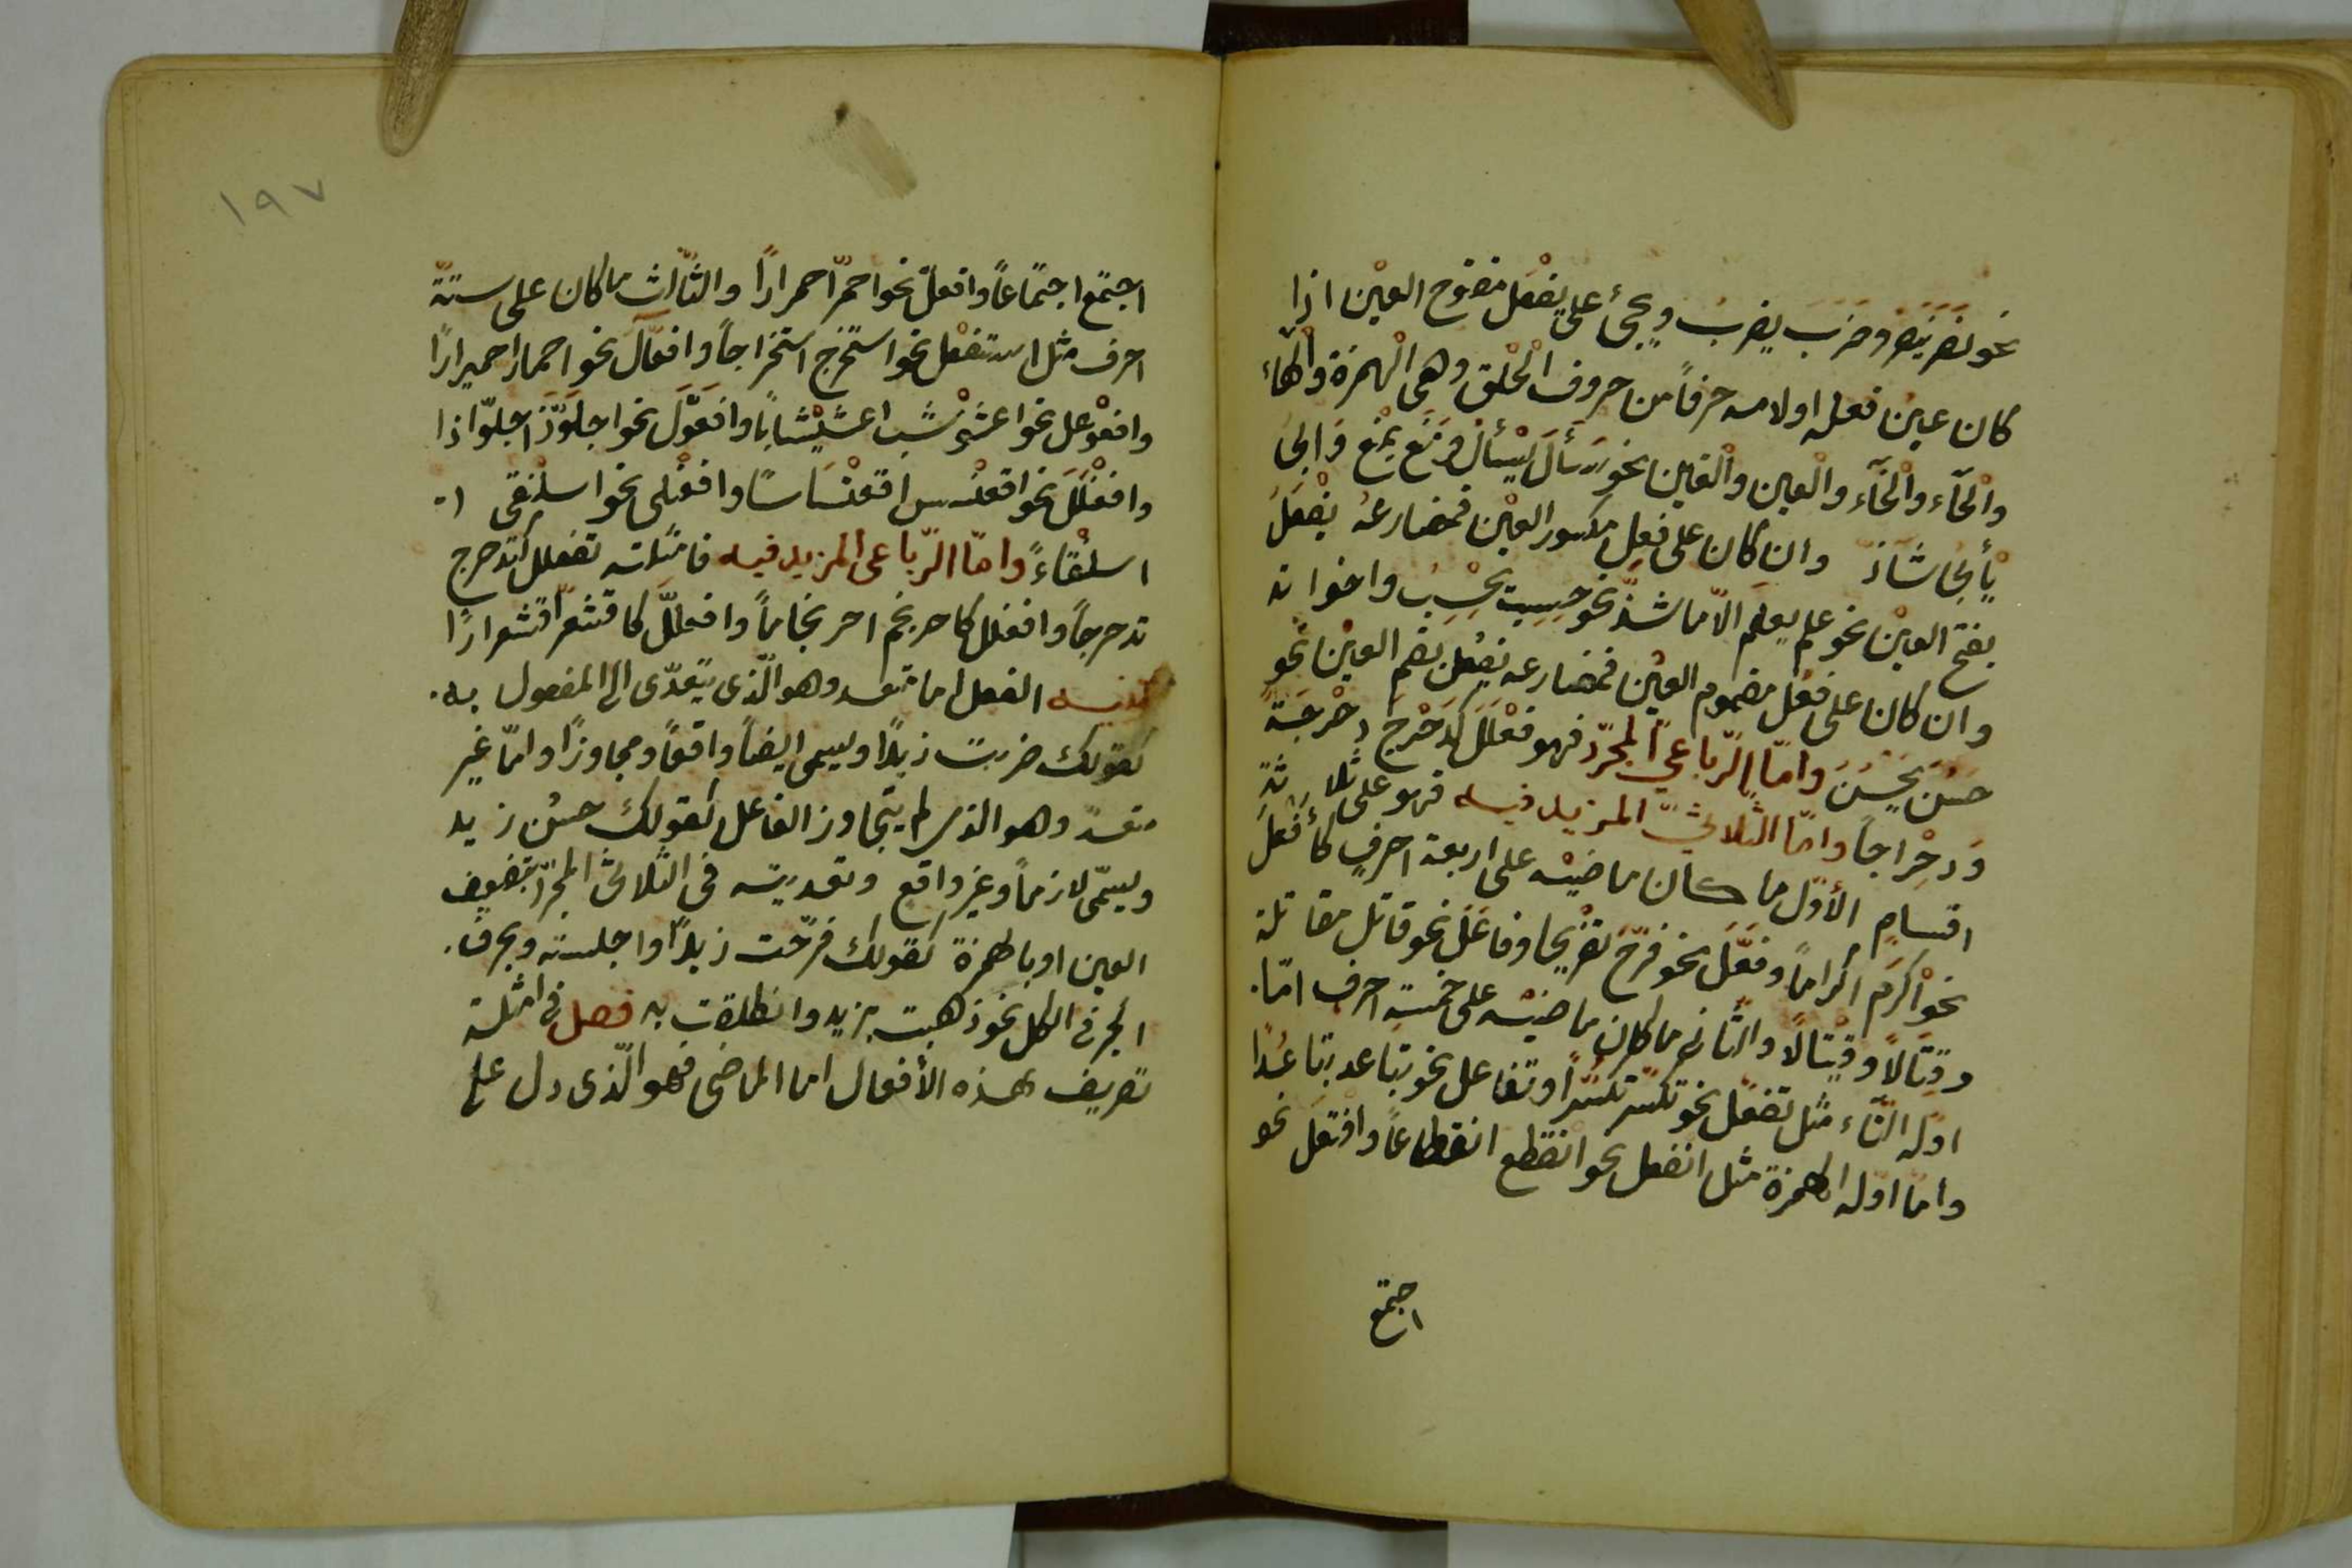 نحو نَصَرَ يَنْصُرُ وضَرَبَ يضرِبُ ويجئ على يفْعَل مفتوح العين اذا
كان عينُ فعله او لامه حرفاً من حروف الْحَلْق وهى الْهمزة والْهاء
والْحَاء والْخَاء والْعين والْغين نحو سَأَلَ يَسْأَلُ ومَنَعَ يَمْنَعُ وَابى
يَأْبى شاذّ وان كان على فَعِلَ مكسور العيْن فمضارعهُ يفْعَلُ
بفتح العيْن نحو علم يعلم الاّ ما شذّ نحو حسِبت يحْسِبُ واخواته
وان كان على فعُل مضموم العيْن فمضارعه يفعُل بضم العيْن نحو
حَسُنَ يَحْسُنُ وامّا الرّباعىّ المجرّد فهو فعْلَلَ كدَحْرَجَ دحْرجَةً
وَدِحْراجاً وامّا الثّلاثىّ المزيد فيه فهو على ثلاثة
اقسام الأوّل ما كان ماضيْه على اربعة احرفٍ كأفْعَلَ
نحو اكْرَم اكراماً وفعَّلَ نحو فرّحَ تفْريحا وفاعَلَ نحو قاتل مقاتلة
وقِتَالاً وقيتالاً والثّانى ما كان ماضيْه على خمسة احرف امّا
اوّله التّاء مثل تفعّل نحو تكسّر تكسّراً وتفاعل نحو تباعد تباعُدا
وامّا اوّله الهمزة مثل انفعل نحو انقطع انقطاعاً وافتعل نحو
اجتمع
١٩٧
اجتمع اجتماعاً وافعلّ نحو احمرّ احمراراً والثّالث ما كان على ستّة
احرف مثل استفعل نحو استخرج استخراجاً وافعالّ نحو احمارّ احميراراً
وافعوْعل نحو اعشوْشب اعشيشاباً وافعَوَّلَ نحو اجلَوّذَ اجلوّاذا
وافعَنْلَلَ نحو اقعنْسس اقعنْساساً وافعنْلى نحو اسلنْقى ا
اسلنْقاءً وامّا الرّباعى المزيد فيه فامثلته تفعلل كتدحرج
تدحرجاً وافعنلل كاحرنجم احرنجاماً وافعللّ كاقشعرّ اقشعراراً
تنبيه الفعل اما متعد وهو الّذى يتعدّى الى المفعول به
كقولك ضربت زيداً ويسمى ايضاً واقعاً ومجاوزاً وامّا غير
متعدّ وهو الذى لم يتجاوز الفاعل كقولك حسُن زيد
ويسمّى لازماً وغير واقع وتعديته فى الثلاثى المجرّد بتضعيف
العين او بالهمزة كقولك فرّحت زيداً واجلسته وبحرف
الجر فى الكل نحو ذهبت بزيد وانطلقت به فصل فى امثلة
تصريف هذه الأفعال اما الماضى فهو الّذى دل على